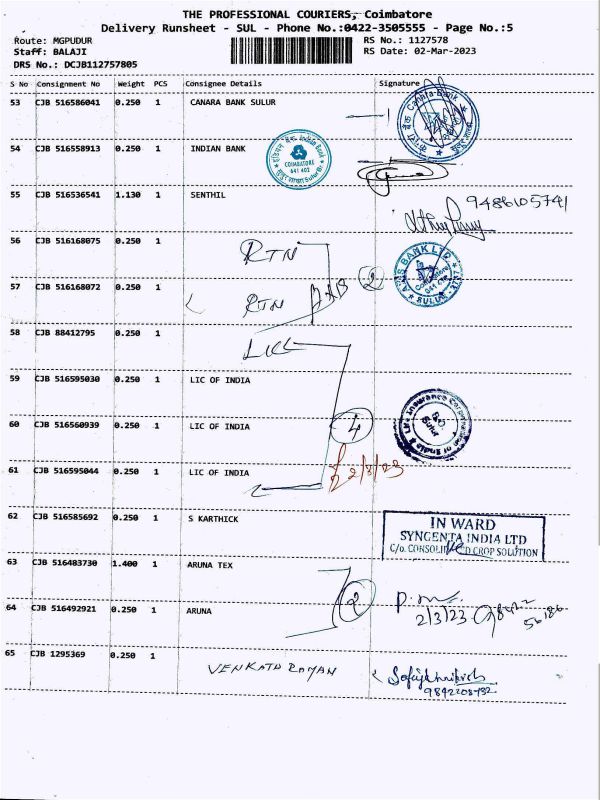 THE PROFESSIONAL COURIERS, Coimbatore
Delivery Runsheet - SUL - Phone No.:0422-3505555 - Page No.:5
Route: MGPUDUR RS No.: 1127578
Staff: BALAJI RS Date: 02-Mar-2023
DRS No.: DCJB112757805
S No Consignment No Weight PCS Consignee Details Signature
53 CJB 516586041 0.250 1 CANARA BANK SULUR
54 CJB 516558913 0.250 1 INDIAN BANK
COIMBATORE
641 402
55 CJB 516536541 1.130 1 SENTHIL 9486105741
56 CJB 516168075 0.250 1 RTN
57 CJB 516168072 0.250 1 RTN 2
58 CJB 88412795 0.250 1 LIC
59 CJB 516595030 0.250 1 LIC OF INDIA
60 CJB 516560939 0.250 1 LIC OF INDIA 4
61 CJB 516595044 0.250 1 LIC OF INDIA 2/3/23
62 CJB 516585692 0.250 1 S KARTHICK
IN WARD
SYNGENTA INDIA LTD
C/o. CONSOLIDATED CROP SOLUTION
63 CJB 516483730 1.400 1 ARUNA TEX
64 CJB 516492921 0.250 1 ARUNA 2 2/3/23
65 CJB 1295369 0.250 1 VENKATA RAMAN